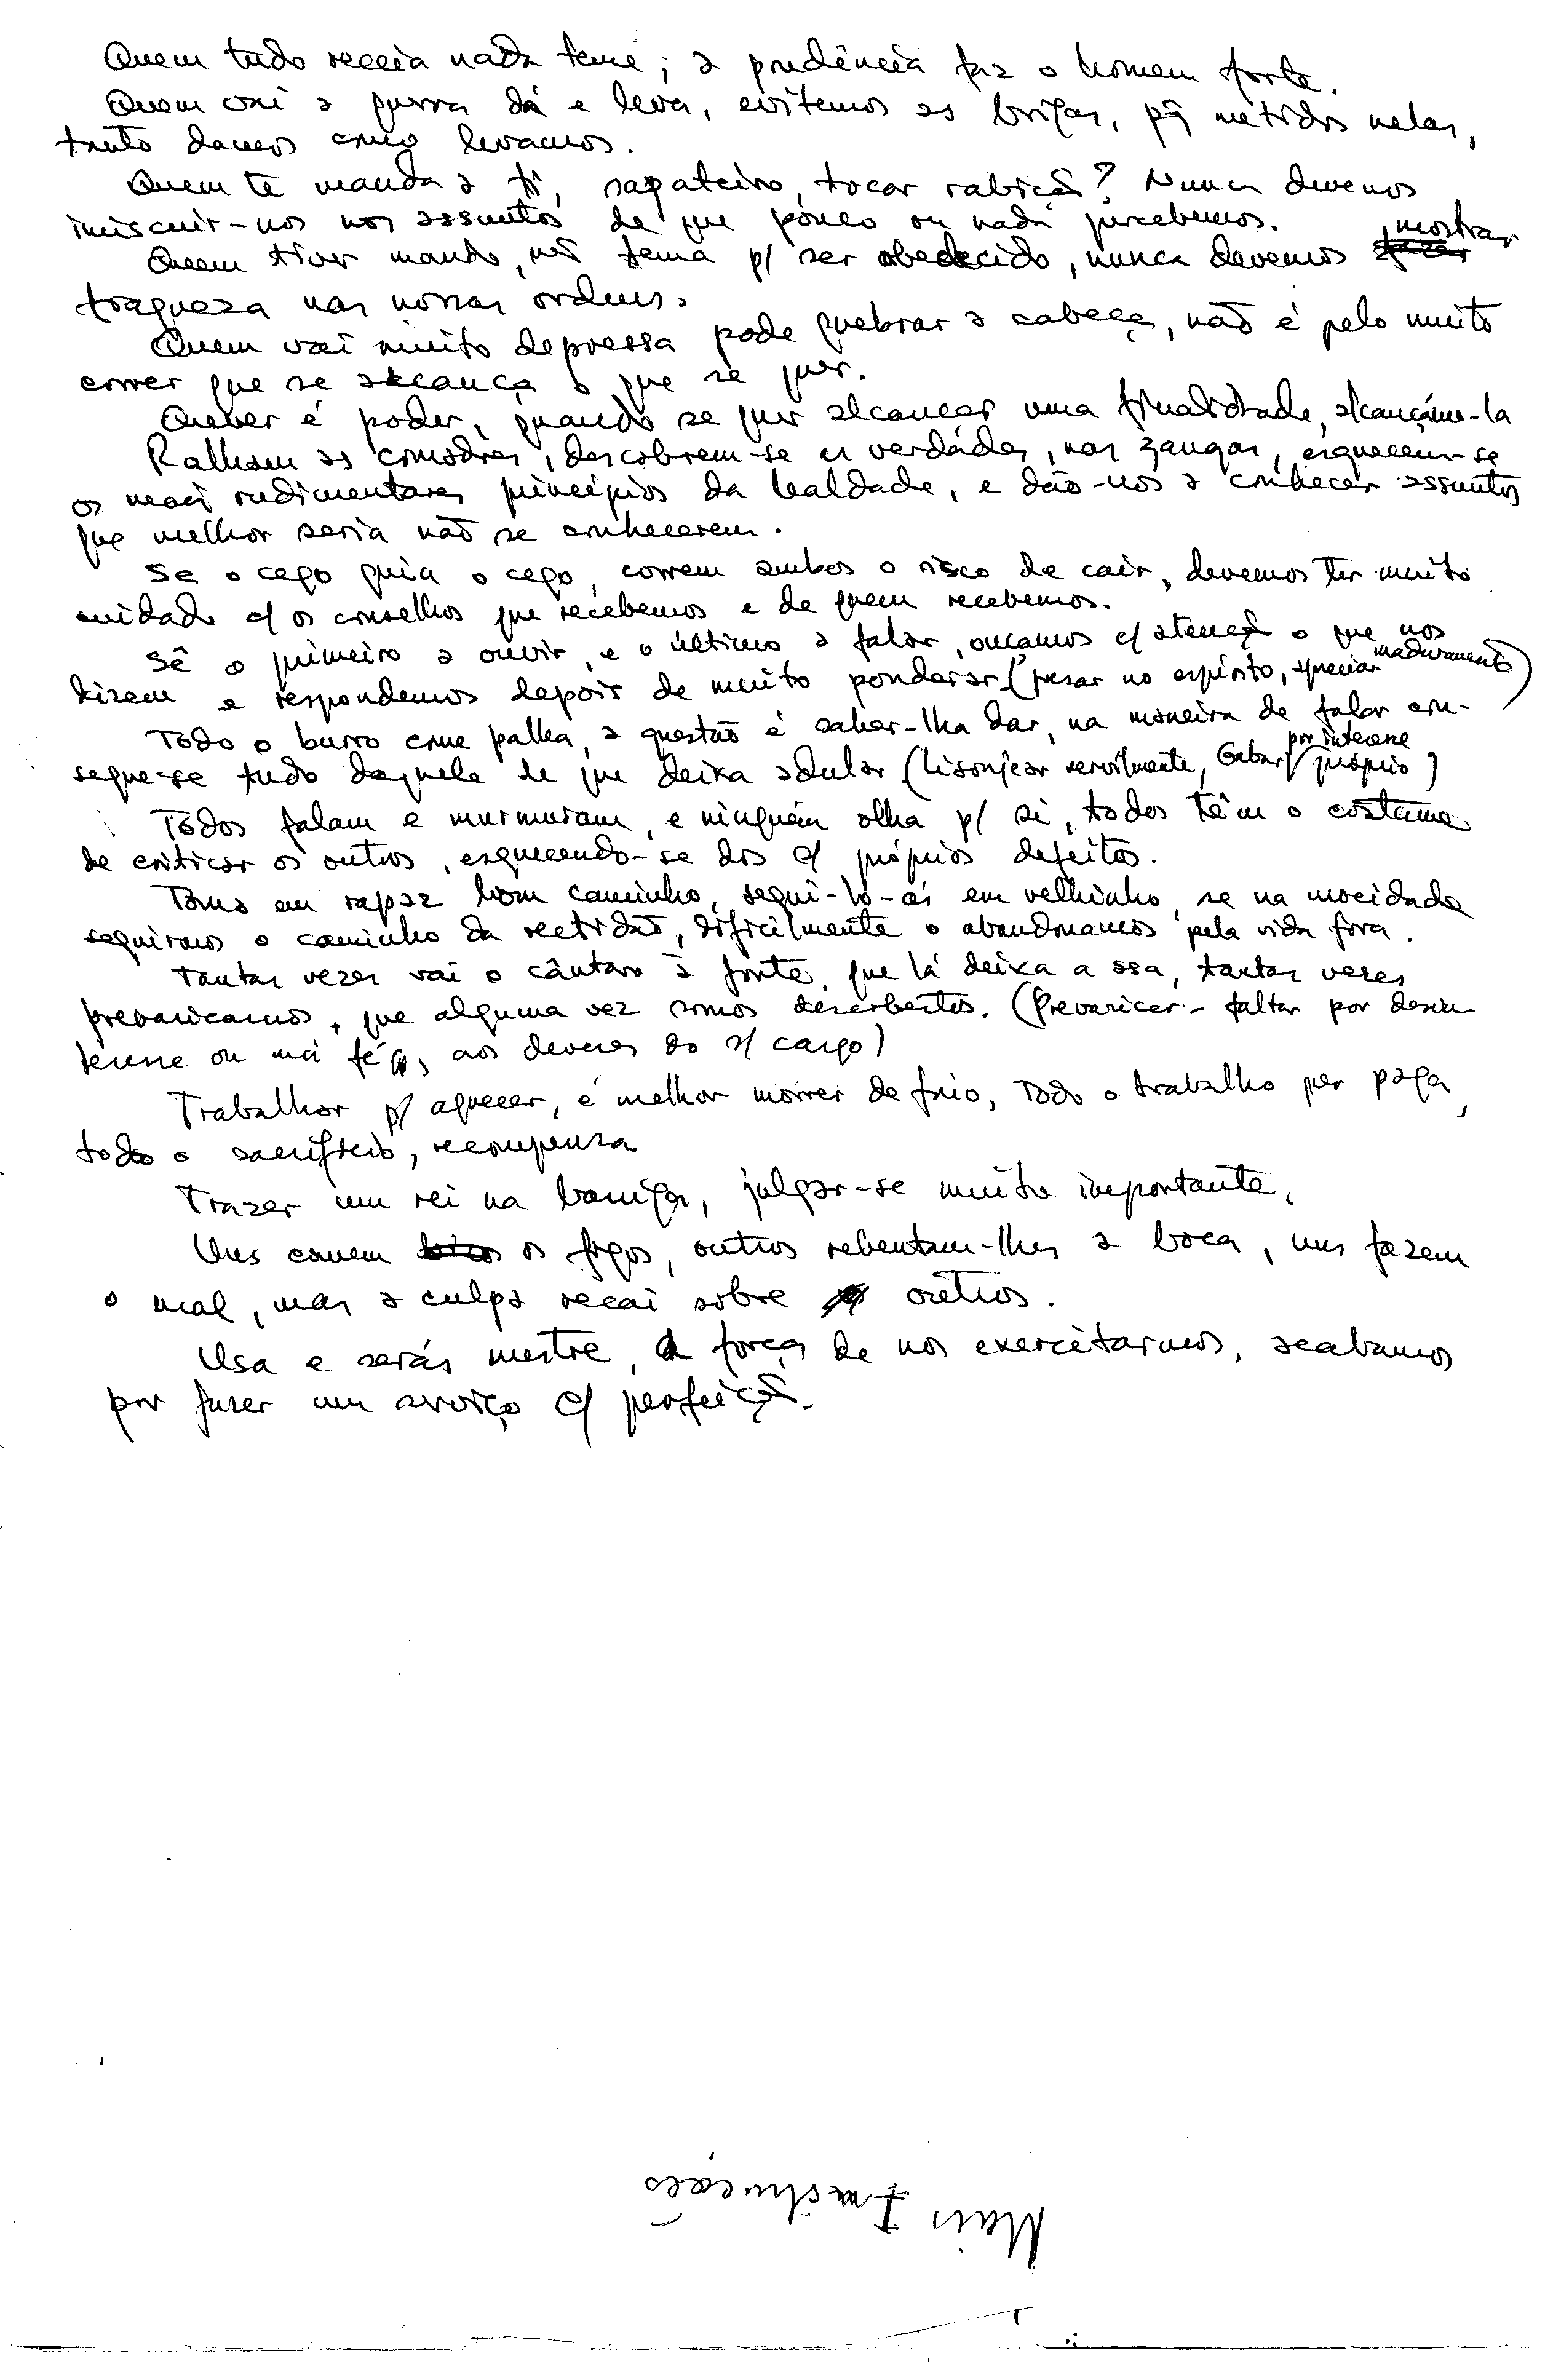 Quem tudo receia nada teme; a prudência faz o homem forte.
Quem vai à guerra dá e leva, evitemos as brigas, pq metidos nelas,
tanto damos como levamos.
Quem te manda a ti, sapateiro, tocar rabicã? Nunca devemos
imiscuir-nos nos assuntos de que pouco ou nada percebemos.
Quem tiver mando, nã tema p/ ser obedecido, nunca devemos mostrar
fraqueza nas nossas ordens.
Quem vai muito depressa pode quebrar a cabeça, não é pelo muito
correr que se alcança o que se quer.
Querer é poder, quando se quer alcançar uma finalidade, alcançámo-la
Ralham as comadres, descobrem-se as verdades, nas zangas, esquecem-se
os mais rudimentares princípios da lealdade, e dão-nos a conhecer assuntos
que melhor seria não se conhecerem.
Se o cego guia o cego, correm ambos o risco de cair, devemos ter muito
cuidado c/ os conselhos que recebemos e de quem recebemos.
Sê o primeiro a ouvir, e o último a falar, ouçamos c/ atençã o que nos
dizem e respondemos depois de muito ponderar (pesar no espírito, apreciar maduramente)
Todo o burro come palha, a questão é saber-lha dar, na maneira de falar con-
segue-se tudo daquele de que deixa adular (lisonjear servilmente, Gabar p/ por interesse próprio)
Todos falam e murmuram, e ninguém olha p/ si, todos têm o costume
de criticar os outros, esquecendo-se dos c/ próprios defeitos.
Toma em rapaz bom caminho, segui-lo-ás em velhinho, se na mocidade
seguirmos o caminho da rectidão, dificilmente o abandonamos pela vida fora.
Tantas vezes vai o cântaro à fonte, que lá deixa a asa, tantas vezes
prevaricamos, que alguma vez somos descobertos. (Prevaricar - faltar por desin
teresse ou má fé, aos deveres do s/ cargo)
Trabalhar p/ aquecer, é melhor morrer de frio, Todo o trabalho quer paga,
todo o sacrifício, recompensa
Trazer um rei na barriga, julgar-se muito importante,
Uns comem os figos, outros rebentam-lhes a boca, uns fazem
o mal, mas a culpa recai sobre outros.
Usa e serás mestre, à força de nos exercitarmos, acabamos
por fazer um serviço c/ perfeiçã.
Mais Instruções